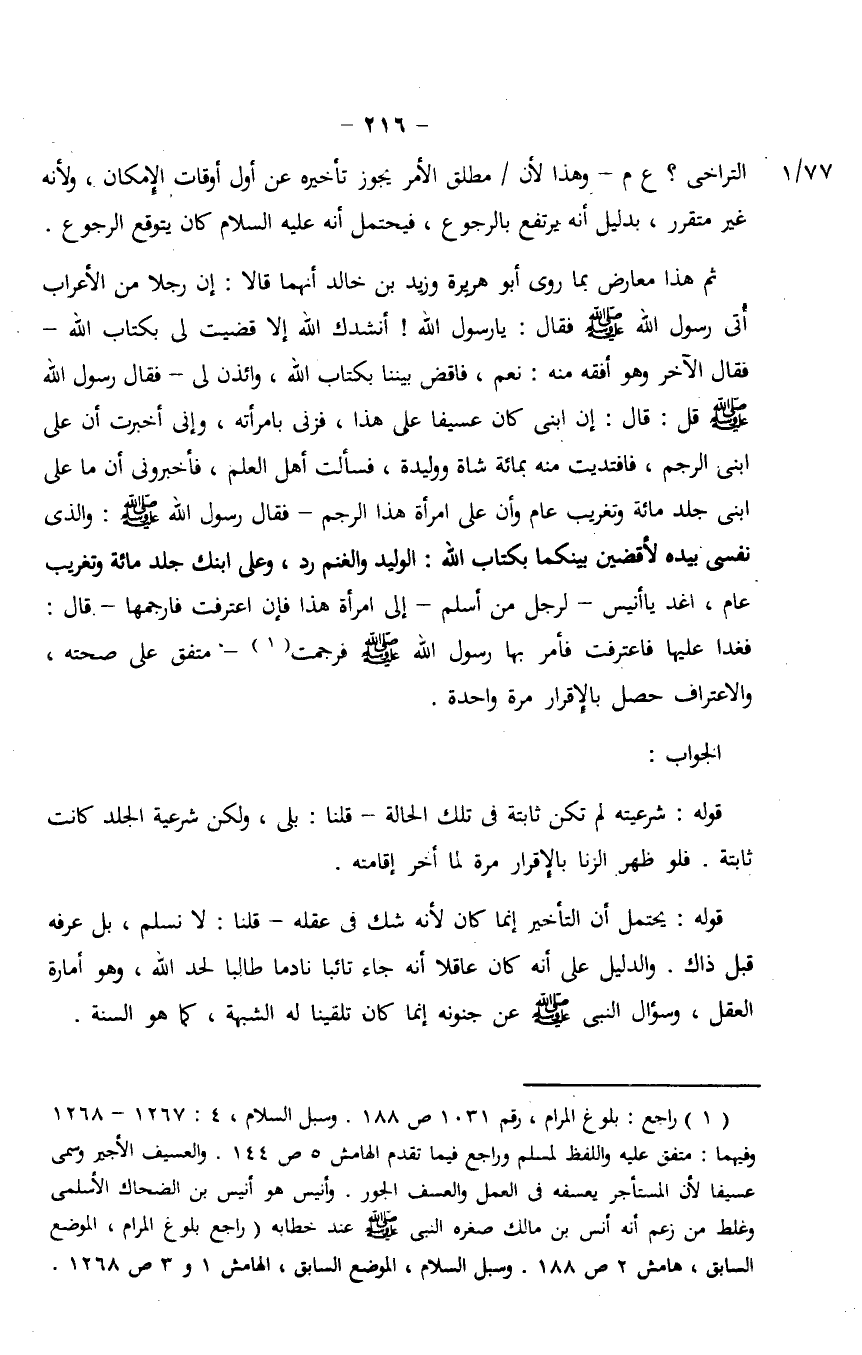 – ٢١٦ –
١/٧٧ التراخى ؟ ع م – وهذا لأن / مطلق الأمر يجوز تأخيره عن أول أوقات الإمكان ، ولأنه
غير متقرر ، بدليل أنه يرتفع بالرجوع ، فيحتمل أنه عليه السلام كان يتوقع الرجوع .
ثم هذا معارض بما روى أبو هريرة وزيد بن خالد أنهما قالا : إن رجلا من الأعراب
أتى رسول الله ﷺ فقال : يارسول الله ! أنشدك الله إلا قضيت لى بكتاب الله –
فقال الآخر وهو أفقه منه : نعم ، فاقض بيننا بكتاب الله ، وائذن لى – فقال رسول الله
ﷺ قل : قال : إن ابنى كان عسيفا على هذا ، فزنى بامرأته ، وإنى أخبرت أن على
ابنى الرجم ، فافتديت منه بمائة شاة ووليدة ، فسألت أهل العلم ، فأخبرونى أن ما على
ابنى جلد مائة وتغريب عام وأن على امرأة هذا الرجم – فقال رسول الله ﷺ : والذى
نفسى بيده لأقضين بينكما بكتاب الله : الوليد والغنم رد ، وعلى ابنك جلد مائة وتغريب
عام ، اغد ياأنيس – لرجل من أسلم – إلى امرأة هذا فإن اعترفت فارجمها – قال :
فغدا عليها فاعترفت فأمر بها رسول الله ﷺ فرجمت(١) – متفق على صحته ،
والاعتراف حصل بالإقرار مرة واحدة .
الجواب :
قوله : شرعيته لم تكن ثابتة فى تلك الحالة – قلنا : بلى ، ولكن شرعية الجلد كانت
ثابتة . فلو ظهر الزنا بالإقرار مرة لما أخر إقامته .
قوله : يحتمل أن التأخير إنما كان لأنه شك فى عقله – قلنا : لا نسلم ، بل عرفه
قبل ذاك . والدليل على أنه كان عاقلا أنه جاء تائبا نادما طالبا لحد الله ، وهو أمارة
العقل ، وسؤال النبى ﷺ عن جنونه إنما كان تلقينا له الشبهة ، كما هو السنة .
(١) راجع : بلوغ المرام ، رقم ١٠٣١ ص ١٨٨ . وسبل السلام ، ٤ : ١٢٦٧ – ١٢٦٨
وفيهما : متفق عليه واللفظ لمسلم وراجع فيما تقدم الهامش ٥ ص ١٤٤ . والعسيف الأجير وسمى
عسيفا لأن المستأجر يعسفه فى العمل والعسف الجور . وأنيس هو أنيس بن الضحاك الأسلمى
وغلط من زعم أنه أنس بن مالك صغره النبى ﷺ عند خطابه ( راجع بلوغ المرام ، الموضع
السابق ، هامش ٢ ص ١٨٨ . وسبل السلام ، الموضع السابق ، الهامش ١ و ٣ ص ١٢٦٨ .